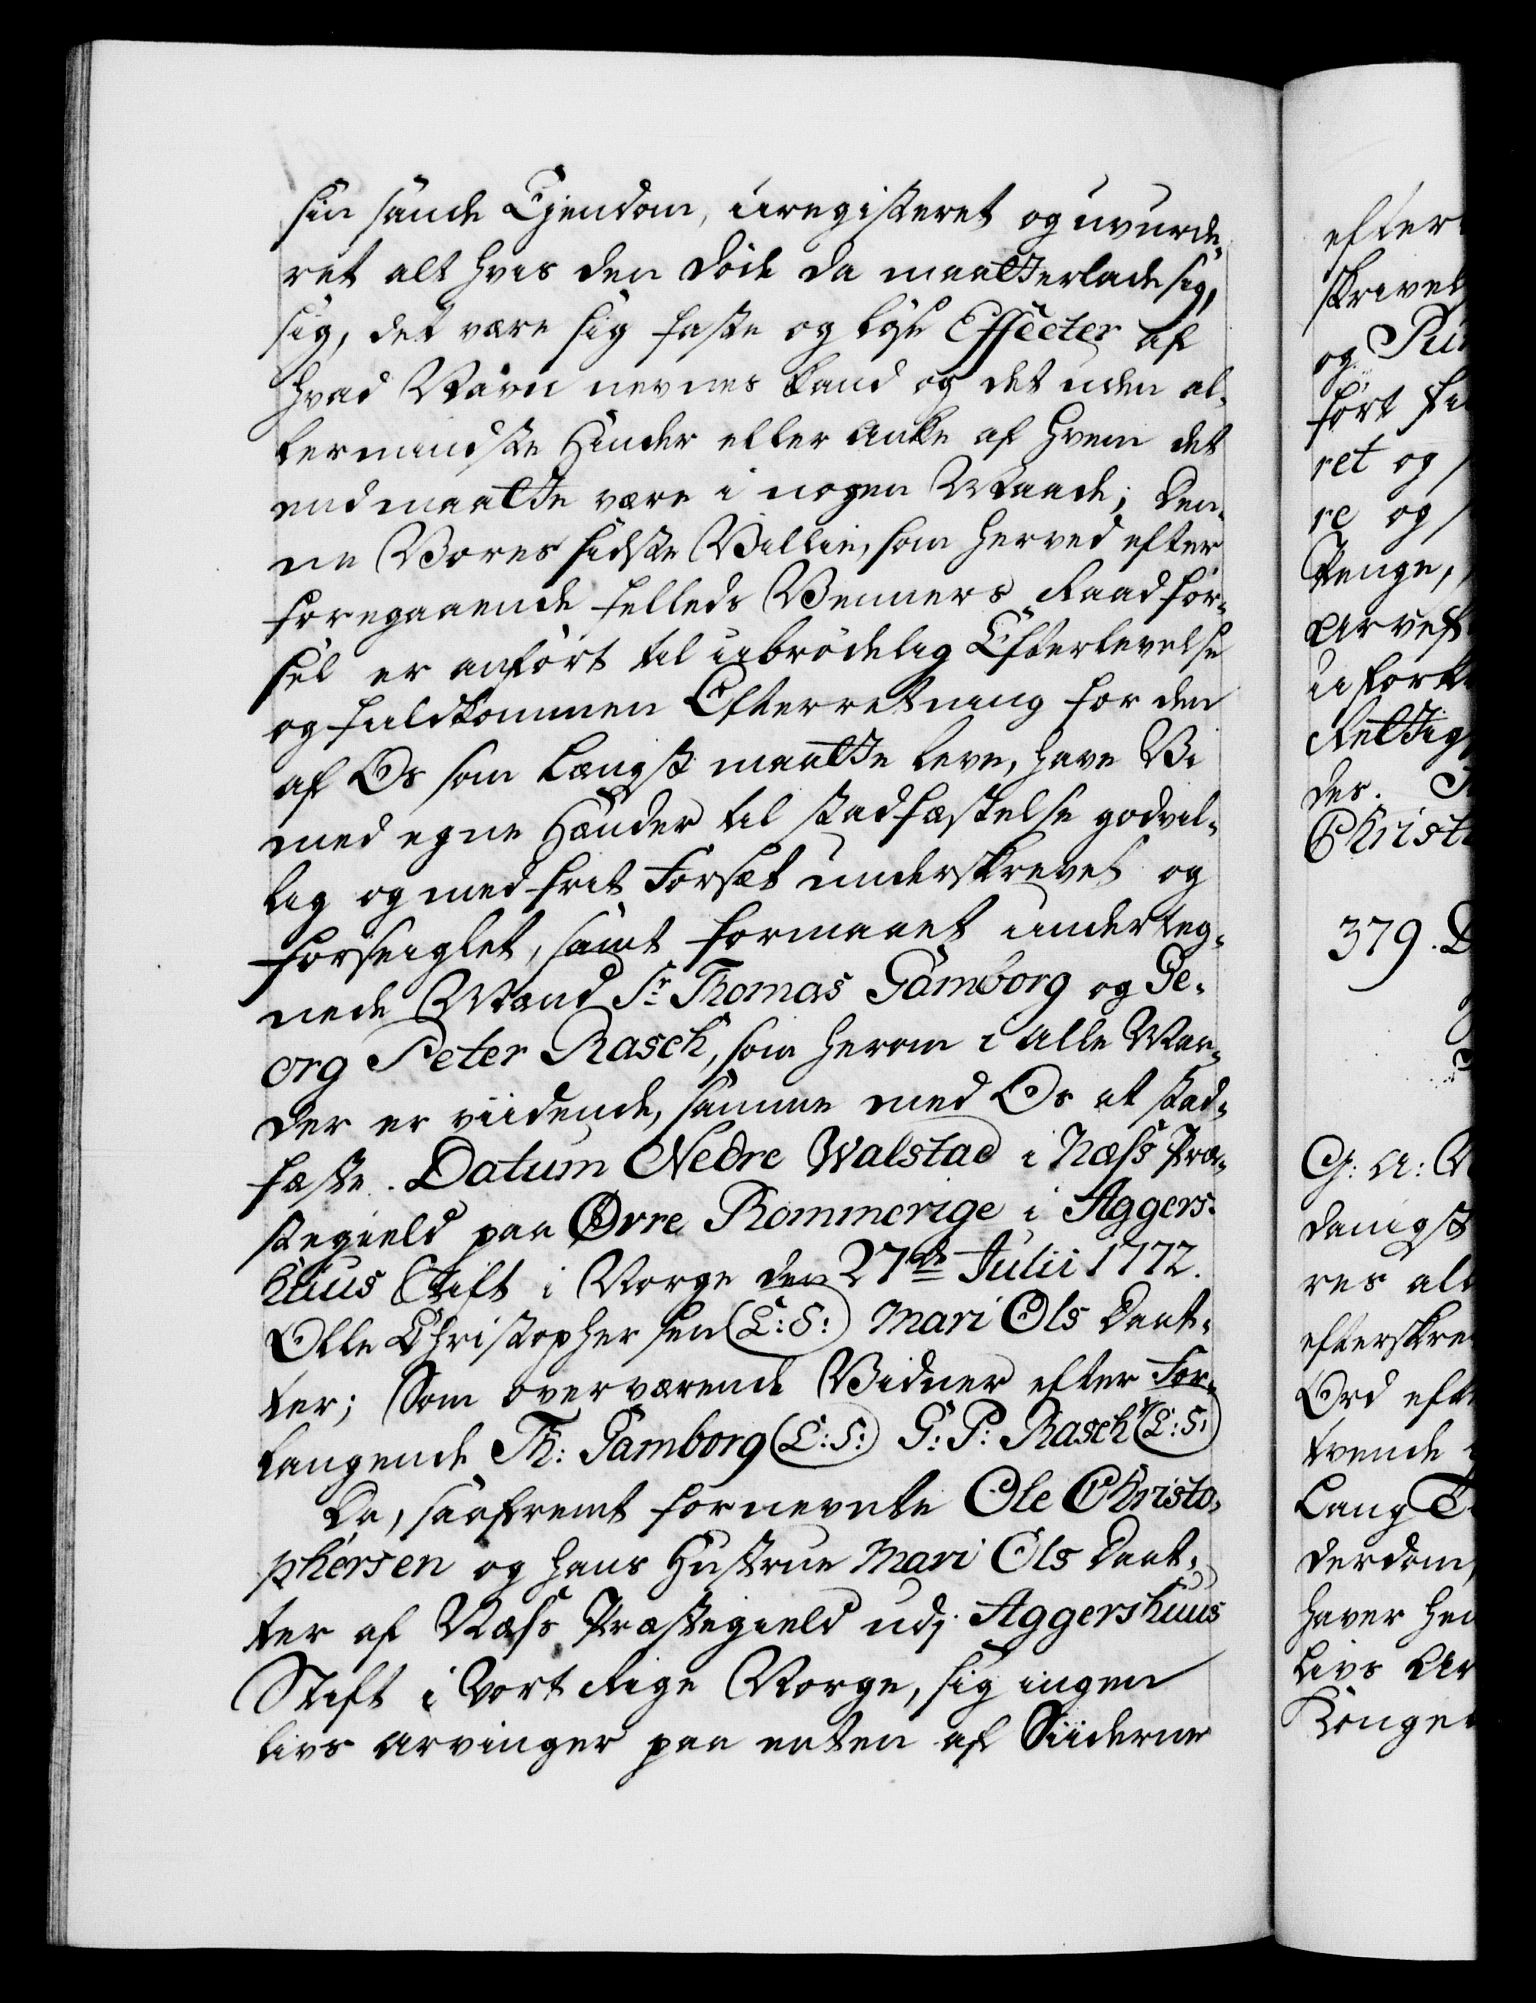 sin sande Ejendom, uregisteret og uvurde-
ret alt hvis den døde da maatte efterlade sig,
sig, det være sig faste og løse Effecter af
hvad Navn nevnes kand og det uden al-
lermindste Hinder eller Anke af hvem det
end maatte være i nogen Maade; Den-
ne Vores sidste Villie, som herved efter
foregaaende felleds Venners Raadfør-
sel er anført til ubrødelig Efterlevelse
og fuldkommen Efterretning for den
af Os som længst maatte leve, have Vi
med egne Hænder til stadfæstelse godvil-
lig og med frit Forsæt underskrevet og
forseiglet, samt formaaet underteg-
nede Mænd Sr. Thomas Gamborg og Ge-
org Peter Rasch, som herom i alle Maa-
der er viidende, samme med Os at stad-
fæste. Datum Nedre Walstad i Næss Præ-
stegield paa Øvre Rommerige i Aggers-
huus Stift i Norge den 27de Julii 1772.
Olle Christophersen (L:S:) Mari Ols Daat-
ter; Som overværende Vidner efter For-
langende Th: Gamborg (L:S:) G: P: Rasch (L:S:)
Da, saafremt fornevnte Ole Christo-
phersen og hans Hustrue Mari Ols Daat-
ter af Næss Præstegield udj Aggershuus
Stift i Vort Rige Norge, sig ingen
livs Arvinger paa enten af Siiderne
efter
skrivel
og
ført
ret og
re og
Penge,
Arveft
uforkr
Rettig
des.
Christ
379. D
G: A:
danigst
res all
efterskre
Ord eft
tvende
Lang
derdom,
haver
livs Ar
Konge